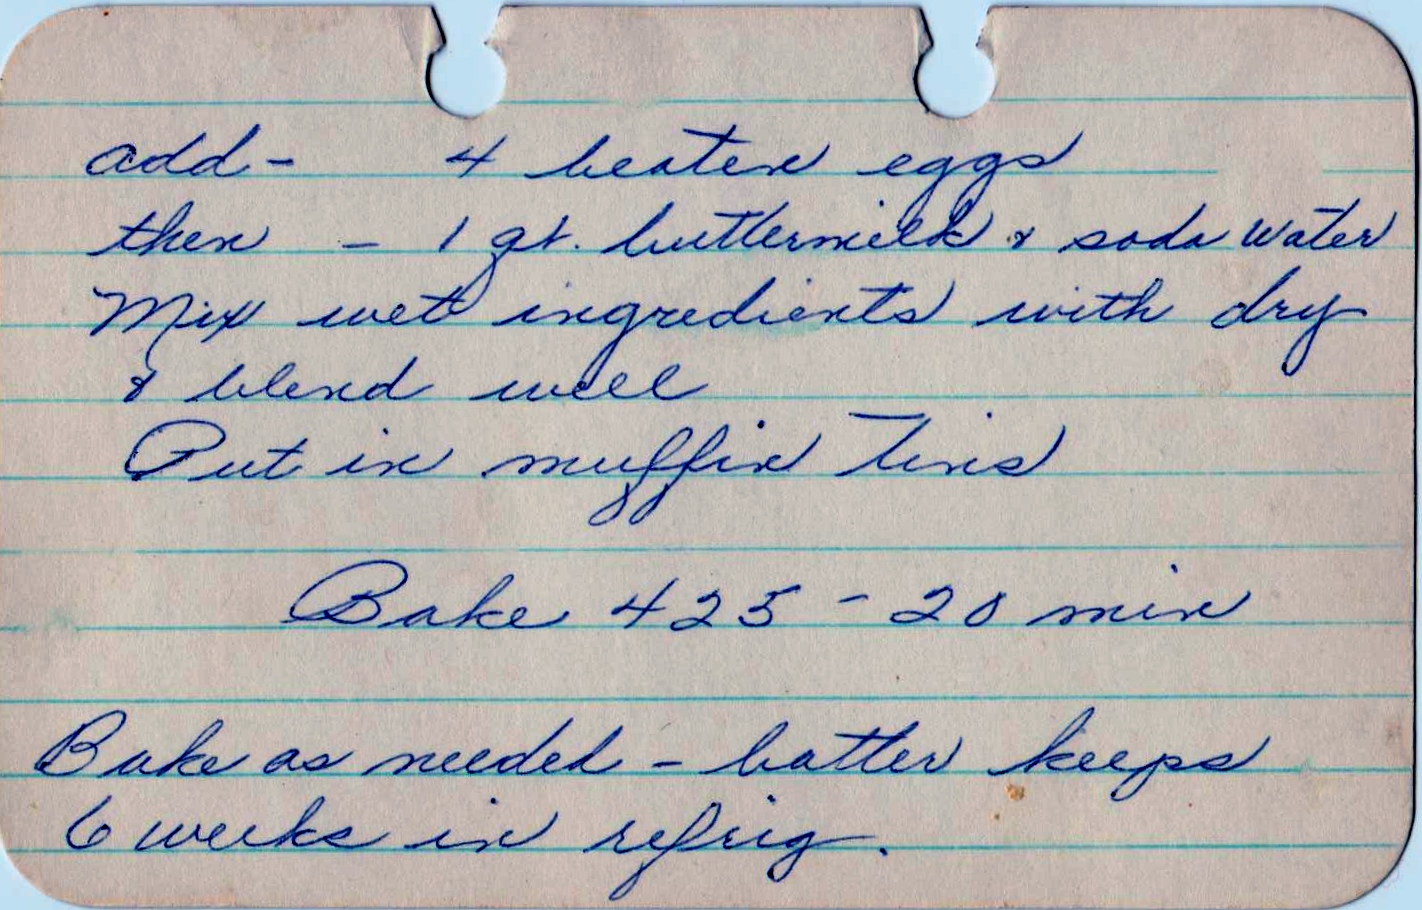 add - 4 beaten eggs
then - 1 qt. buttermilk & soda water
Mix wet ingredients with dry
& blend well
Put in muffin tins
Bake 425 - 20 min
Bake as needed - batter keeps
6 weeks in refrig.